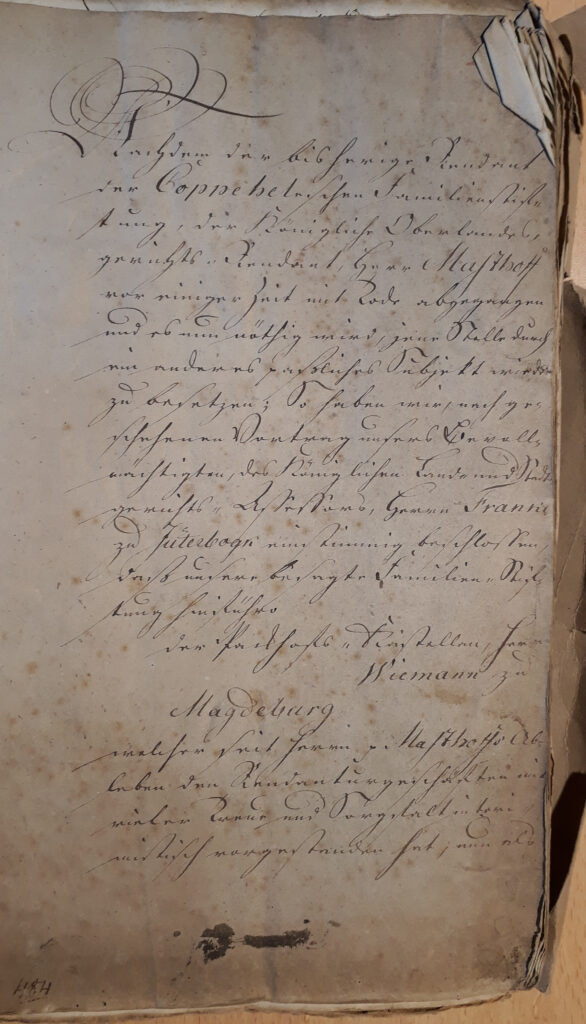 Nachdem der bisherige Rendant
der Coppehelschen Familienstif-
tung, der Königliche Oberlandes-
gerichts-Rendant, Herr Masthoff
vor einiger Zeit mit Tode abgegangen
und es nun nöthig wird, jene Stelle durch
ein anderes paßliches Subjekt wieder
zu besetzen; So haben wir, nach ge-
schehenen Vortrag unsers Bevoll-
mächtigten, des Königlichen Land- und Stadt-
gerichts-Assessors, Herrn
zu Jüterbogk einstimmig beschlossen,
daß unsere besagte Familien-Stif-
tung hinführo
der Packhofs-Kastellan, Herr
Wiemann zu
Magdeburg
welcher seit Herrn p. Masthoffs Ab-
leben den Rendanturgeschäften mit
vieler Treue und Sorgfalt interi-
mistisch vorgestanden hat, nun als
484